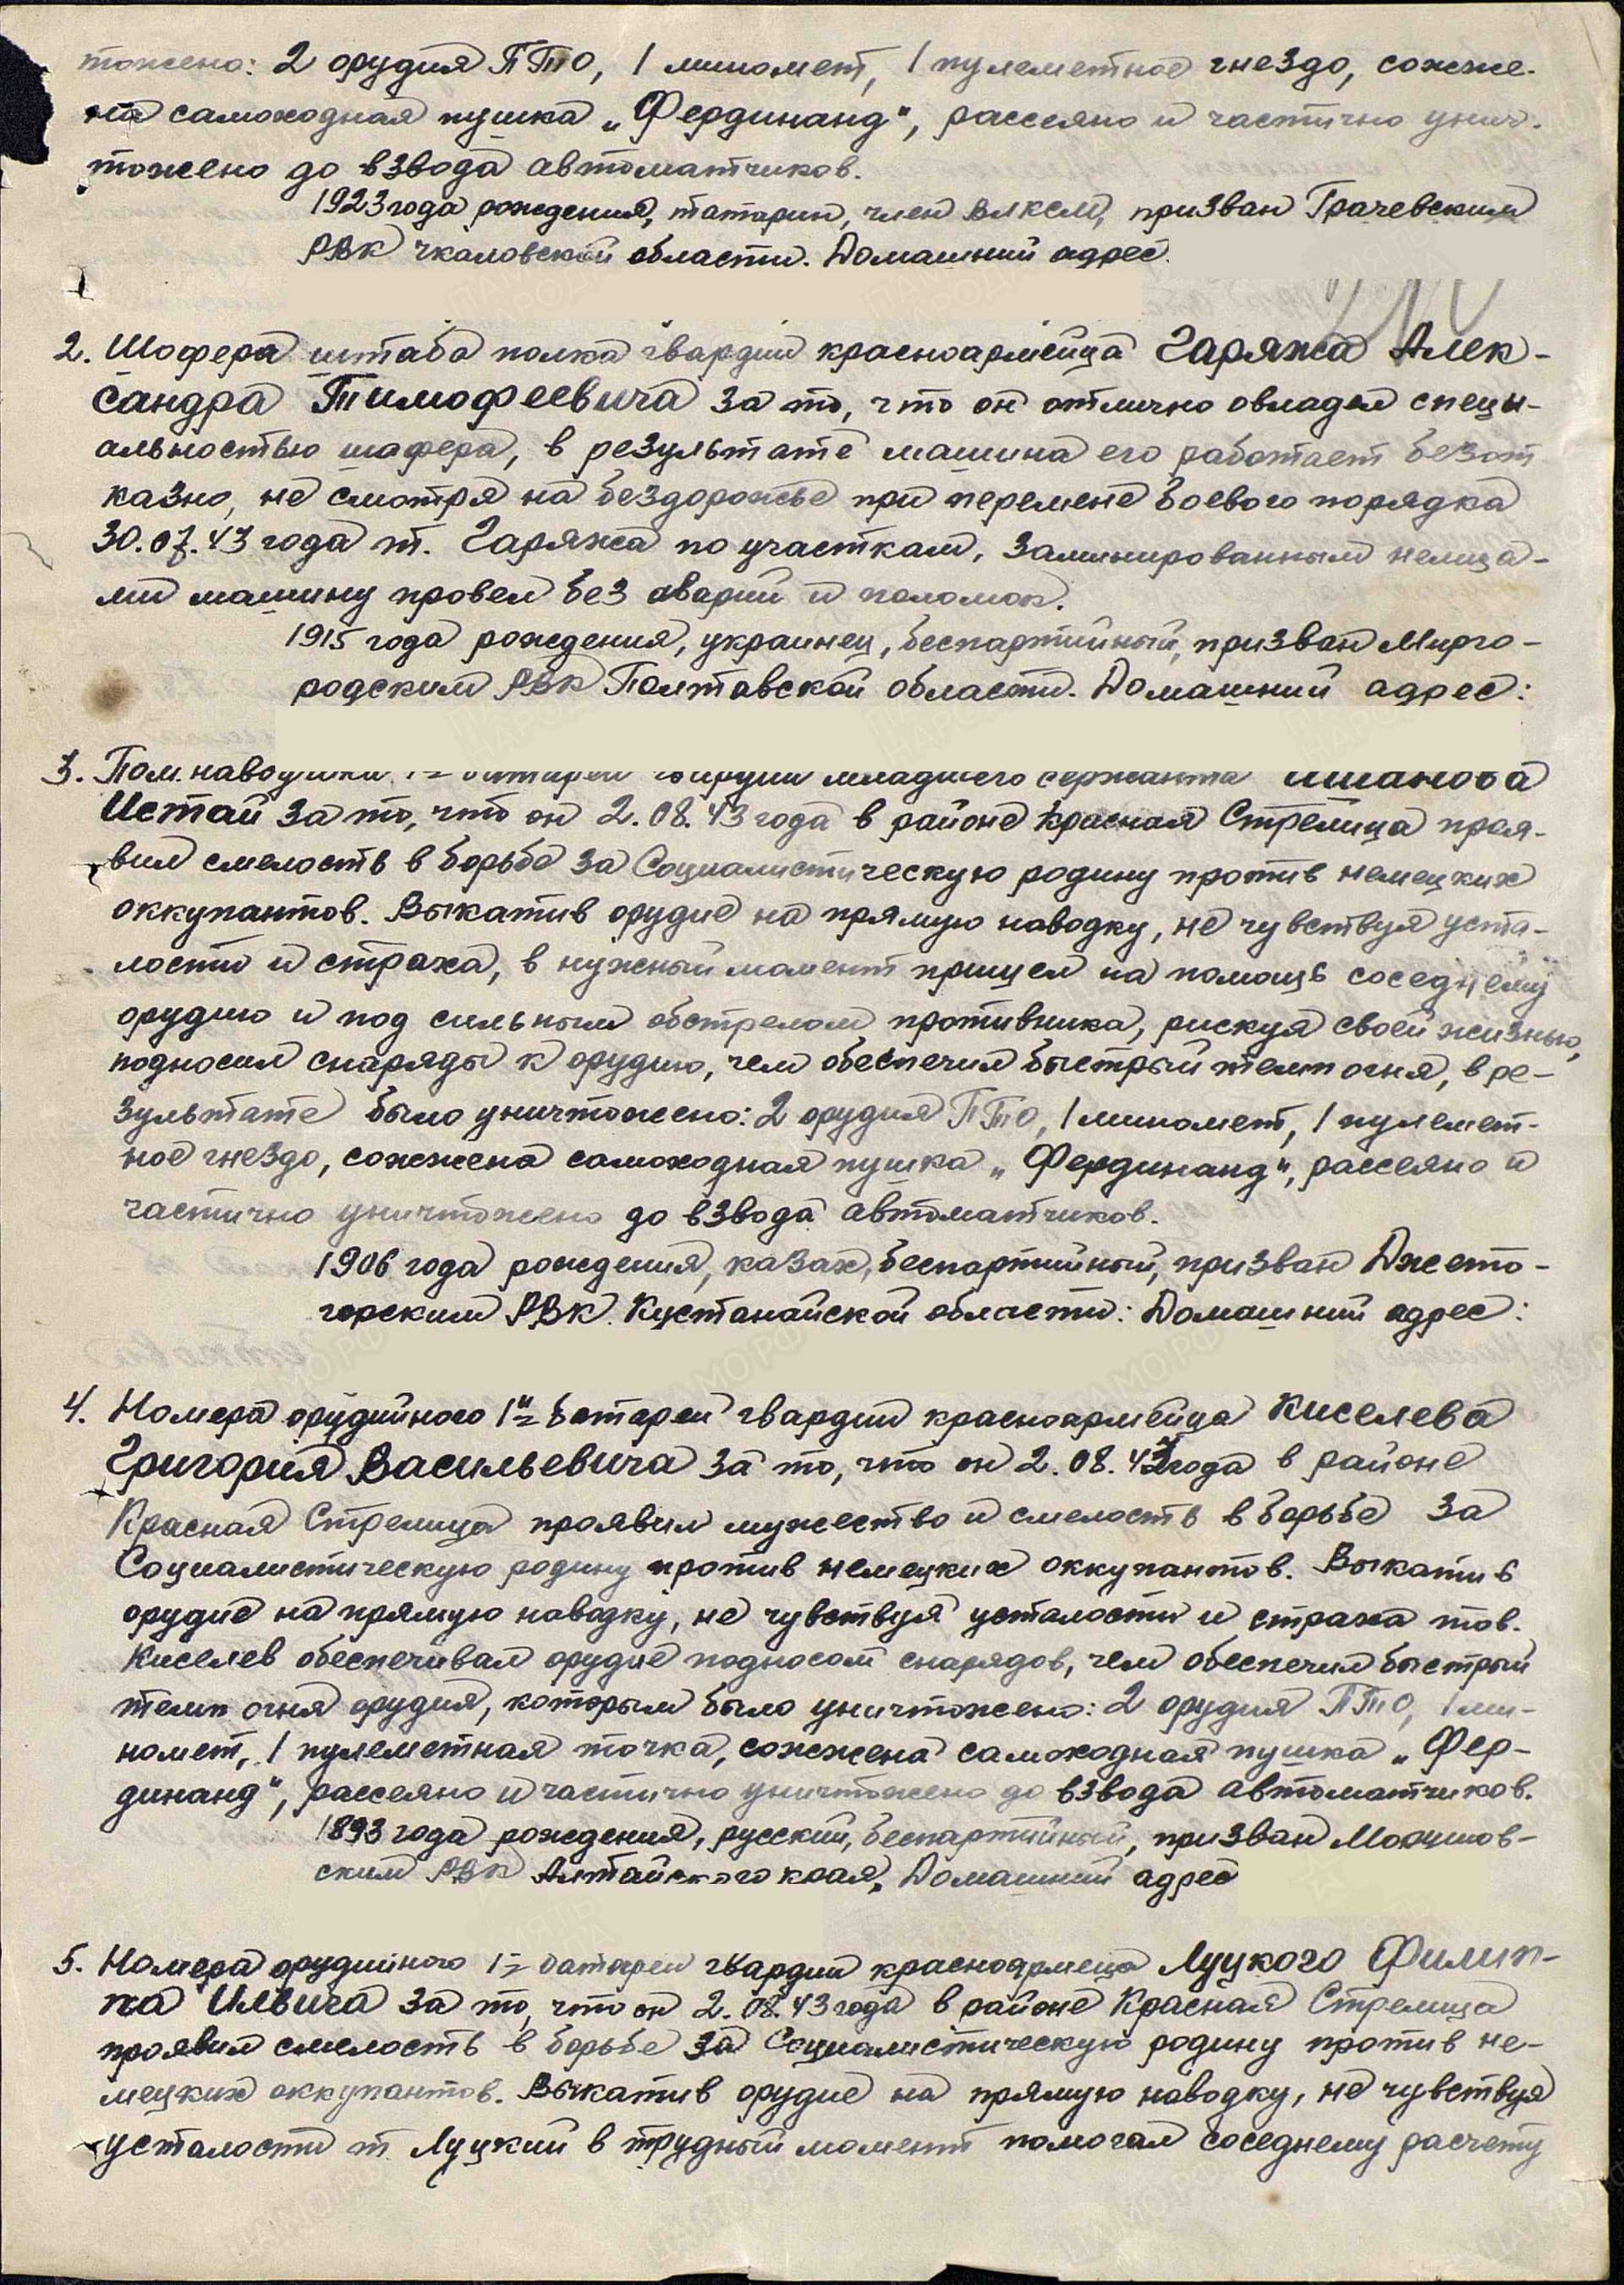 тожено: 2 орудия ПТО, 1 миномет, 1 пулеметное гнездо, сожже-
на самоходная пушка „Фердинанд“, рассеяно и частично унич-
тожено до взвода автоматчиков.
1923 года рождения, татарин, член ВЛКСМ, призван Грачевским
РВК Чкаловской области. Домашний адрес.
2. Шофера штаба полка гвардии красноармейца Гаряжа Алек-
сандра Тимофеевича за то, что он отлично овладел специ-
альностью шофера, в результате машина его работает безот
казно, не смотря на бездорожье при перемене боевого порядка
30.07.43 года т. Гаряжа по участкам, заминированным немца-
ми машину провел без аварий и поломок.
1915 года рождения, украинец, беспартийный, призван Мирго-
родским РВК Полтавской области. Домашний адрес:
3. Пом. наводчика 1й батареи гвардии младшего сержанта
Истай за то, что он 2.08.43 года в районе Красная Стрелица проя-
вил смелость в борьбе за Социалистическую родину против немецких
оккупантов. Выкатив орудие на прямую наводку, не чувствуя уста-
лости и страха, в нужный момент пришел на помощь соседнему
орудию и под сильным обстрелом противника, рискуя своей жизнью,
подносил снаряды к орудию, чем обеспечил быстрый темп огня, в ре-
зультате было уничтожено: 2 орудия ПТО, 1 миномет, 1 пулемет-
ное гнездо, сожжена самоходная пушка „Фердинанд“, рассеяно и
частично уничтожено до взвода автоматчиков.
1906 года рождения, казах, беспартийный, призван Джето-
горским РВК Кустанайской области: Домашний адрес:
4. Номера орудийного 1й батареи гвардии красноармейца Киселева
Григория Васильевича за то, что он 2.08.43 года в районе
Красная Стрелица проявил мужество и смелость в борьбе за
Социалистическую родину против немецких оккупантов. Выкатив
орудие на прямую наводку, не чувствуя усталости и страха тов.
Киселев обеспечивал орудие подносом снарядов, чем обеспечил быстрый
темп огня орудия, которым было уничтожено: 2 орудия ПТО, 1 ми-
номет, 1 пулеметная точка, сожжена самоходная пушка „Фер-
динанд“, рассеяно и частично уничтожено до взвода автоматчиков.
1893 года рождения, русский, беспартийный, призван
ским РВК Алтайского края. Домашний адрес
5. Номера орудийного 1й батареи гвардии красноармеца Луцкого Филип-
па Илвича за то, что он 2.08.43 года в районе Красная Стрелица
проявил смелость в борьбе за Социалистическую родину против не-
мецких оккупантов. Выкатив орудие на прямую наводку, не чувствуя
усталости т Луцкий в трудный момент помогал соседнему расчету